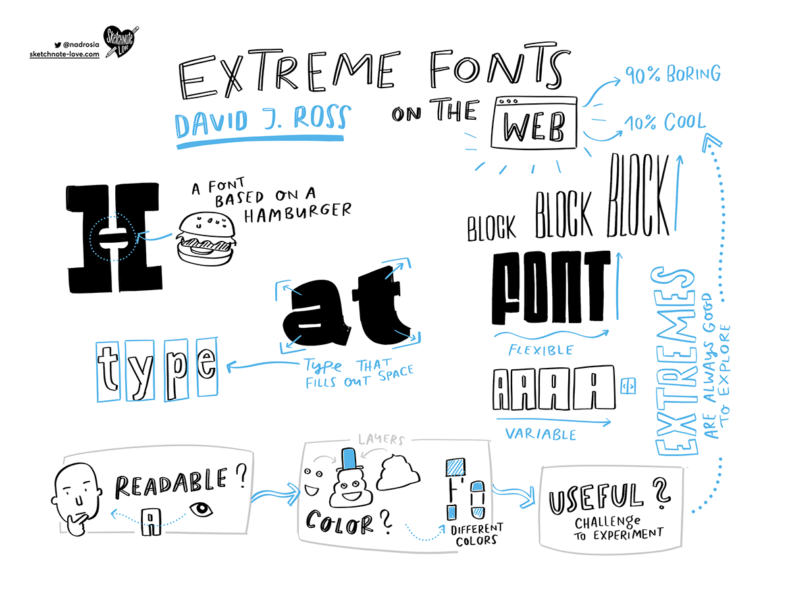 @nadrosia
sketchnote-love.com
Sketchnote
Love
EXTREME FONTS
DAVID J. ROSS
ON THE
WEB
90% BORING
10% COOL
A FONT
BASED ON A
HAMBURGER
H
BLOCK BLOCK BLOCK
FONT
FLEXIBLE
AAAA
VARIABLE
at
TYPE THAT
FILLS OUT SPACE
type
EXTREMES
ARE ALWAYS GOOD
TO EXPLORE
READABLE?
A
LAYERS
COLOR?
DIFFERENT
COLORS
USEFUL?
CHALLENGE
TO EXPERIMENT